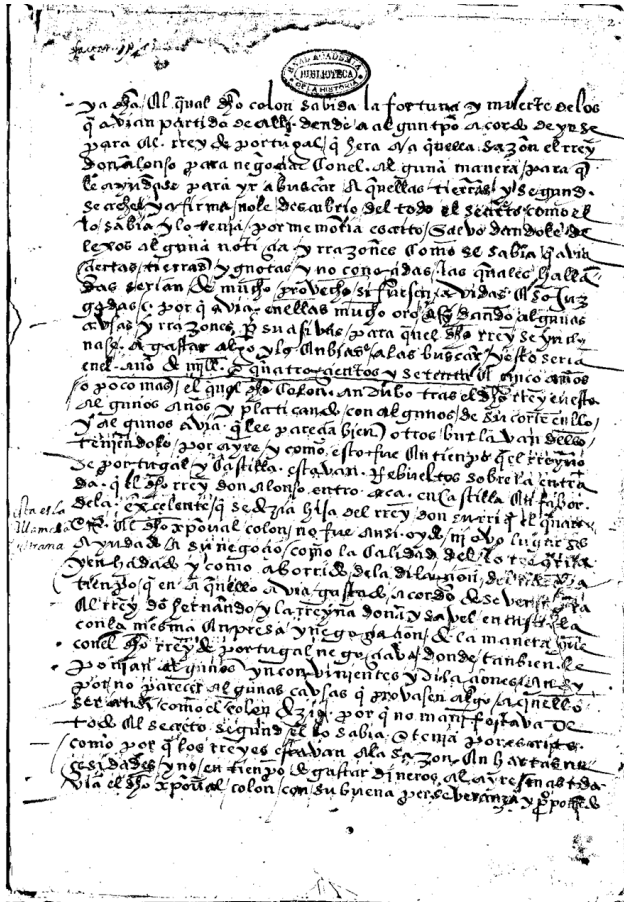 2
REAL ACADEMIA
BIBLIOTECA
DE LA HISTORIA
ya dha / Al qual dho colon sabida la fortuna y muerte delos
q avian partido de alli / dende a algun tpo acordo de yrse
para Al rrey de portugal / q hera a la quella sazon el rrey
don alonso para negociar Conel Al guna manera / para q
le ayudase para yr a buscar a quellas tierras / y segund
se cree / y afirma / nole descubrio del todo el secreto como el
lo sabia / y lo tenia / por memoria escrito / Salvo dandole de
lexos al guna noti cia / y rrazones Como se sabia q avia
ciertas tierras / ygnotas y no conocidas / las quales halla
das serian / de mucho provecho si fuesen avidas
por q avia enellas mucho oro dando algunas
cavsas / y rrazones p suasivas / para quel dho rrey se yncly
nase A gastar algo / y las enbiase a las buscar / y esto seria
enel Año de mill quatro cientos y setenta cinco años
o poco mas / el qual dho Colon Andubo tras el dho rrey en esto
Al gunos Años / y platicando / con al gunos / de su corte enello /
y al gunos avia q lee parecia bien / otros burlavan dello
teniendolo / por ayre / y como esto fue en tiempo quel rreyno
de portugal / y Castilla estavan Rebueltos sobre la entra
da q el dho rrey don alonso entro aca en castilla En fabor
dela Excelente / q se dezia hija del rrey don enrriq el quarto
esta es la
llamada
Al dho xpoval colon / no fue Ansi oydo / ni ovo lugar
Ayuda de A su negocio / como la calidad del lo
y enhadado y como aborrido dela dilacion
tiempo / q en A quello avia gastado / acordo de se venir
Al rrey do hernando / y la rreyna dona ysavel en castilla
conla mesma Enpresa / y negociacion / de la manera que
conel dho rrey de portugal nego ciava / donde tanbien le
ponian Al gunos ynconvinientes y dilaciones
por no parecer al gunas cavsas q provasen algo / a quello
ser ansi / como el colon dezia / por q no manifestava De
todo Al secreto segund el lo sabia o tenia por escripto
como por q los rreyes estavan Ala Sazon En hartas ne
cesidades / y no en tiempo de gastar dineros al ayre
via el dho xpoval colon / con su buena perseveranza y